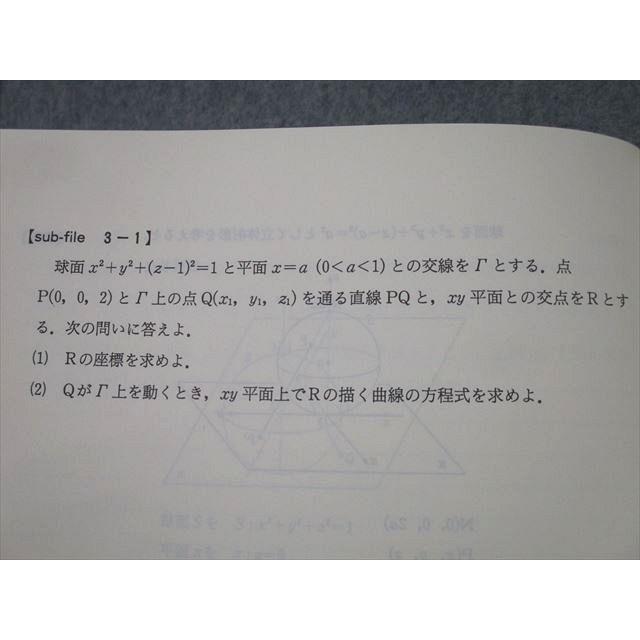 【sub-file 3－1】
球面 x²+y²+(z-1)²=1 と平面 x=a (0<a<1) との交線を Γ とする．点
P(0, 0, 2) と Γ 上の点 Q(x₁, y₁, z₁) を通る直線 PQ と，xy 平面との交点を R とす
る．次の問いに答えよ．
(1) R の座標を求めよ．
(2) Q が Γ 上を動くとき，xy 平面上で R の描く曲線の方程式を求めよ．